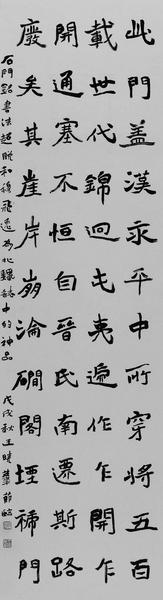 此門蓋漢永平中所穿將五百
載世代綿迥屯夷遞作乍開乍
開通塞不恒自晉民南遷斯路
廢矣其崖岸崩淪磵閣堙褫門
石門銘書法超脫和穆飛逸為北魏銘中的神品 戊戌秋王